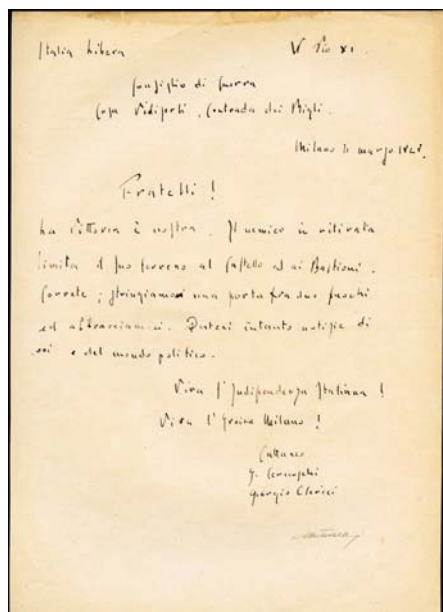 Italia Libera W Pio XI.
Consiglio di Guerra
Casa Vidiserti, Contrada dei Bigli.
Milano marzo
Fratelli!
La vittoria è nostra. Il nemico in ritirata
limita il suo terreno al Castello ed ai Bastioni.
Correte; stringiamoci una porta fra due fuochi
ed abbracciamoci. Dateci intanto notizie di
e del mondo politico.
Viva l'Indipendenza Italiana!
Viva l' Milano!
Cattaneo
Cernuschi
Giorgio Clerici